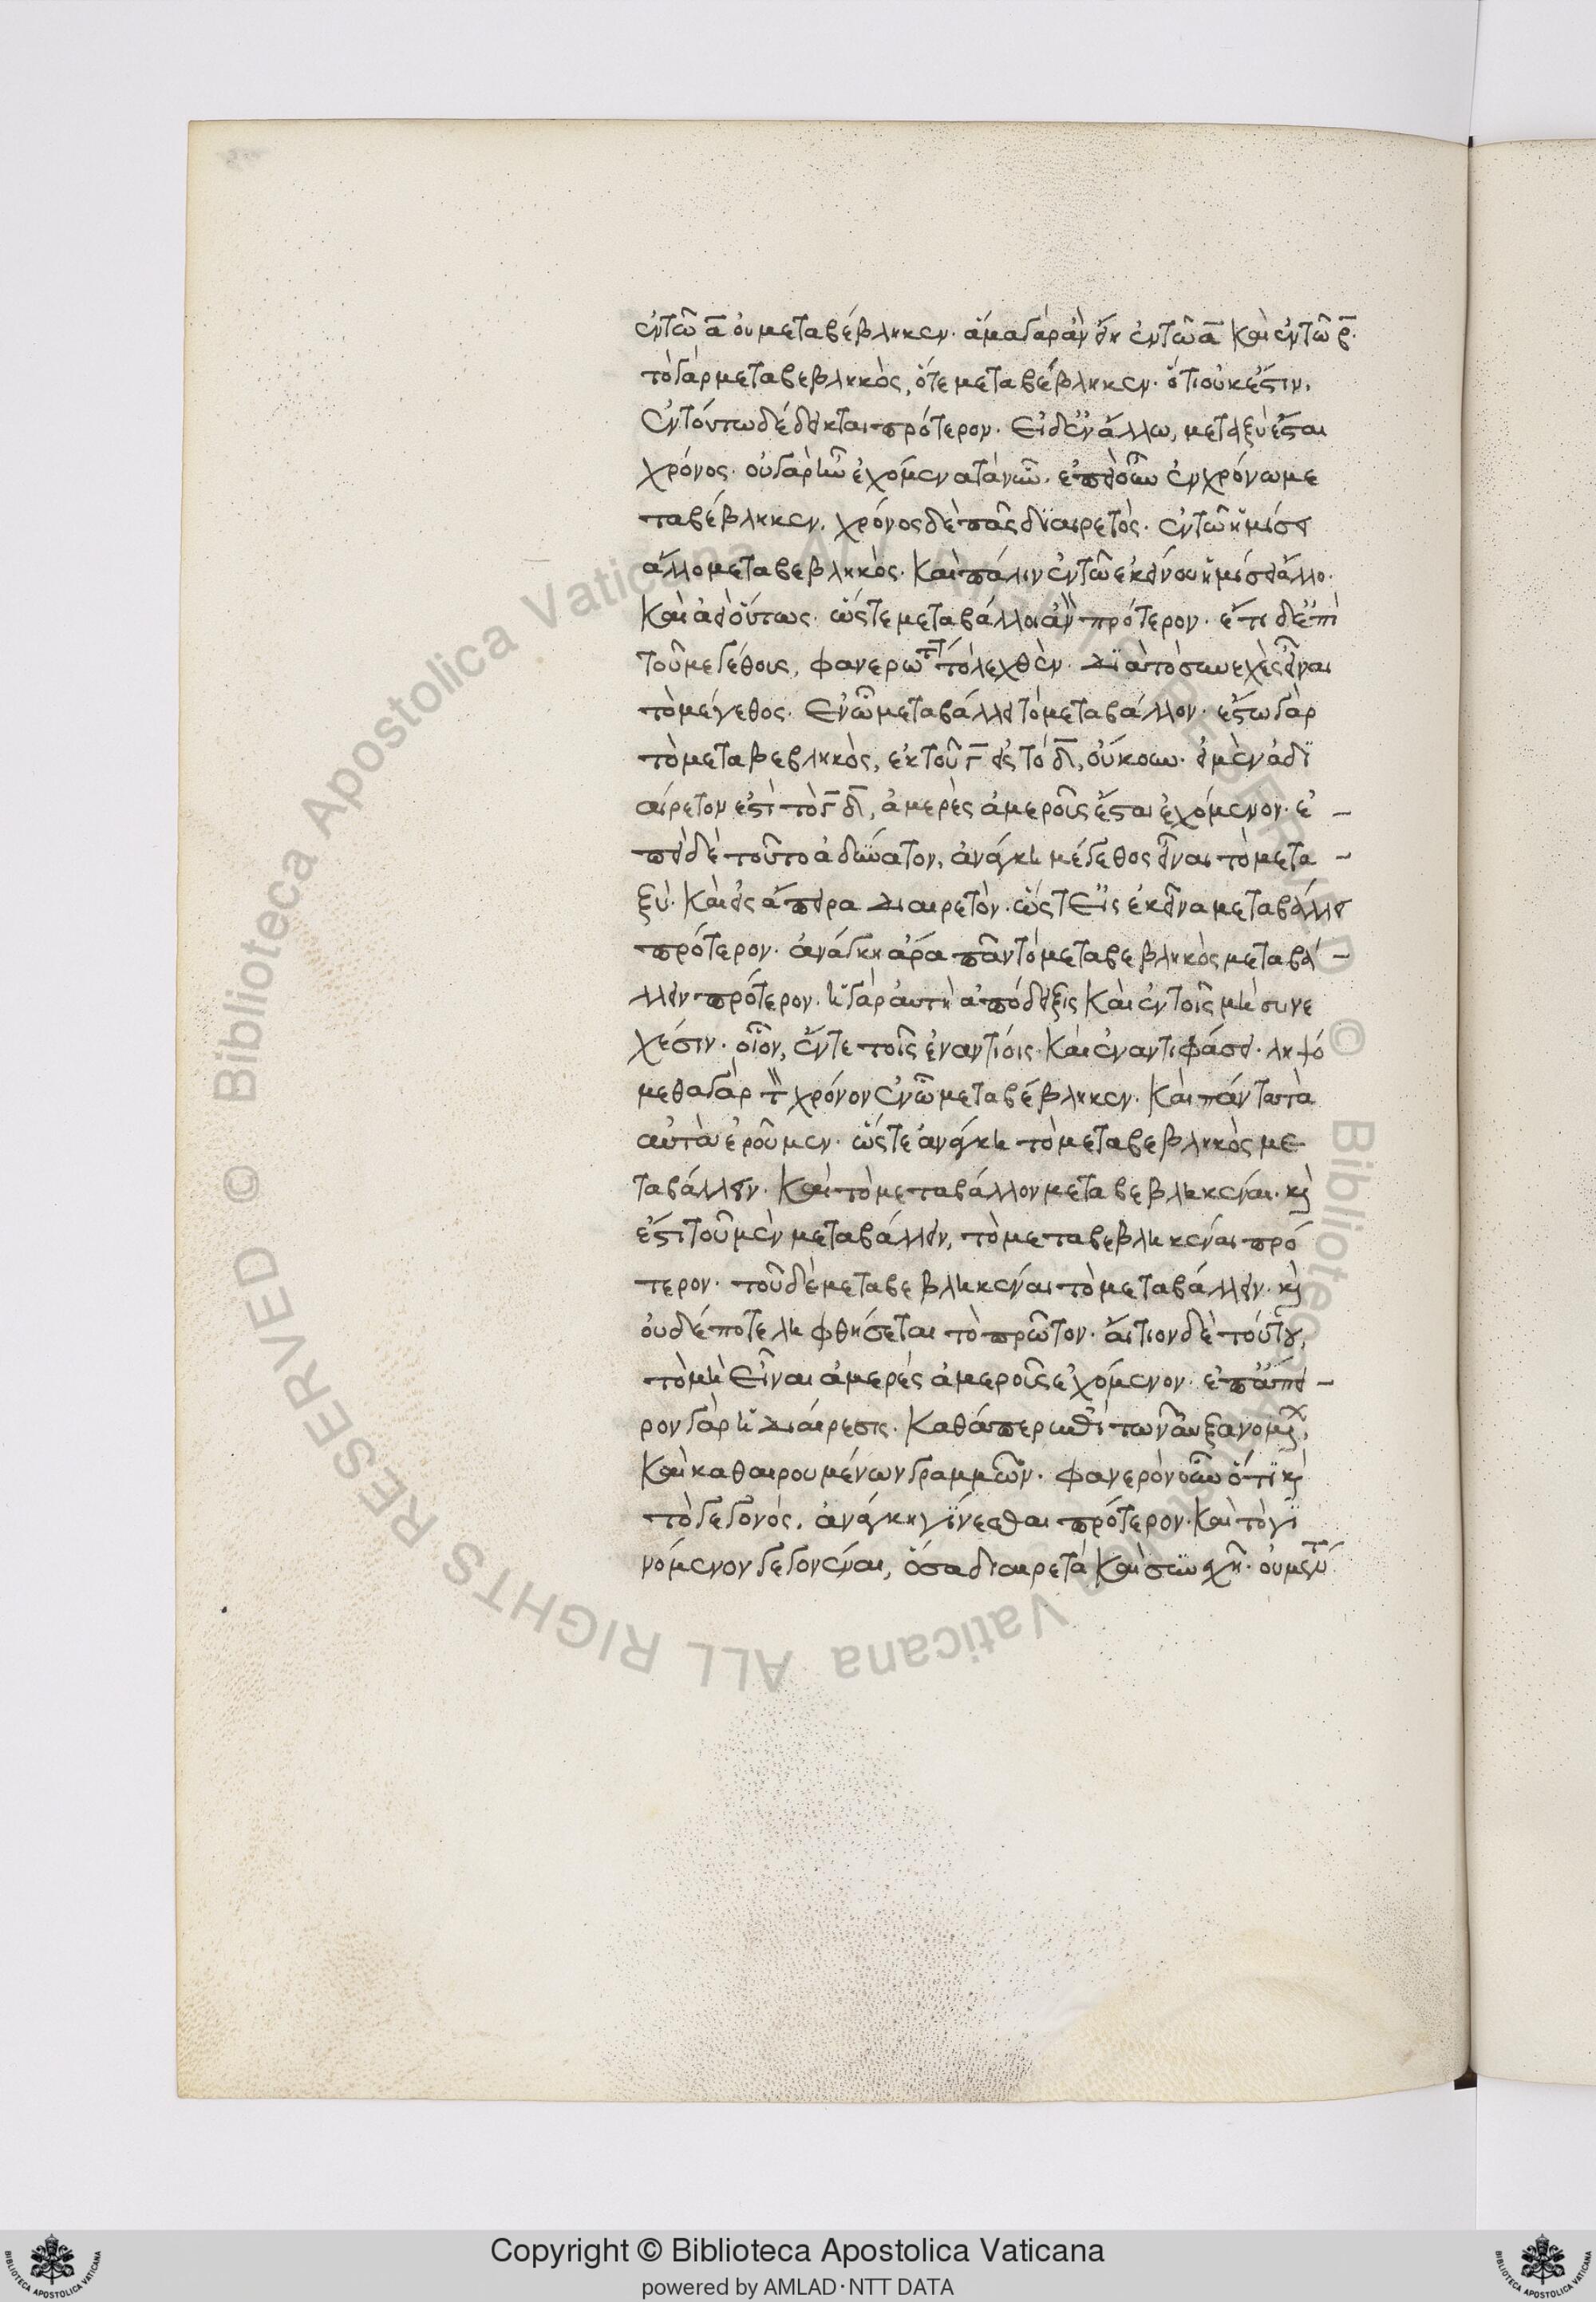 ἐν τῶ α οὐ μεταβέβληκεν· ἅμα γὰρ ἂν εἴη ἐν τῶ α καὶ ἐν τῶ β·
τὸ γὰρ μεταβεβληκὸς, ὅτε μεταβέβληκεν· ὅτι οὐκ ἔστιν,
ἐν τούτω δέδεικται πρότερον· εἰ δ' ἐν ἄλλω, μεταξὺ ἔσται
χρόνος· οὐ γὰρ ἦν ἐχόμενα τὰ νῦν· ἐπεὶ οὖν ἐν χρόνω με
ταβέβληκεν, χρόνος δὲ πᾶς διαιρετὸς· ἐν τῶ ἡμίσει
ἄλλο μεταβεβληκὸς· καὶ πάλιν ἐν τῶ ἐκείνου ἡμίσει ἄλλο·
καὶ ἀεὶ οὕτως· ὥστε μεταβάλλοι ἂν πρότερον· ἔτι δ' ἐπὶ
τοῦ μεγέθους, φανερωτ τὸ λεχθὲν· διὰ τὸ συνεχὲς εἶναι
τὸ μέγεθος· ἐν ὧ μεταβάλλει τὸ μεταβάλλον· ἔστω γὰρ
τὸ μεταβεβληκὸς, ἐκ τοῦ γ εἰς τὸ δ, οὔκουν· εἰ μὲν ἀδι
αίρετον ἐστὶ τὸ γ δ, ἀμερὲς ἀμεροῦς ἔσται ἐχόμενον· ἐ –
πεὶ δὲ τοῦτο ἀδύνατον, ἀνάγκη μέγεθος εἶναι τὸ μετα –
ξὺ· καὶ εἰς ἄπειρα διαιρετὸν· ὥστ' εἰς ἐκεῖνα μεταβάλλει
πρότερον· ἀνάγκη ἄρα πᾶν τὸ μεταβεβληκὸς μεταβά –
λλειν πρότερον· ἡ γὰρ αὐτὴ ἀπόδειξις καὶ ἐν τοῖς μὴ συνε
χέσιν· οἷον, ἔν τε τοῖς ἐναντίοις· καὶ ἐν αντιφάσει· ληψό
μεθα γὰρ τ χρόνον ἐν ὧ μεταβέβληκεν· καὶ πάντα τὰ
αὐτὰ ἐροῦμεν· ὥστε ἀνάγκη τὸ μεταβεβληκὸς με
ταβάλλειν· καὶ τὸ μεταβάλλον μεταβεβληκέναι· κ
ἔστι τοῦ μὲν μεταβάλλειν, τὸ μεταβεβληκέναι πρό
τερον· τοῦ δὲ μεταβεβληκέναι τὸ μεταβάλλειν· κ
οὐδέποτε ληφθήσεται τὸ πρῶτον· αἴτιον δὲ τούτου,
τὸ μὴ εἶναι ἀμερὲς ἀμεροῦς ἐχόμενον· ἐπ' ἄπει –
ρον γὰρ ἡ διαίρεσις· καθάπερ ἐπὶ τῶν αὐξανομ,
καὶ καθαιρουμένων γραμμῶν· φανερὸν οὖν ὅτι κ
τὸ γεγονὸς, ἀνάγκη γίνεσθαι πρότερον· καὶ τὸ γι
νόμενον γεγονέναι, ὅσα διαιρετὰ καὶ συνεχῆ· οὐ μέντ
Copyright © Biblioteca Apostolica Vaticana
powered by AMLAD·NTT DATA